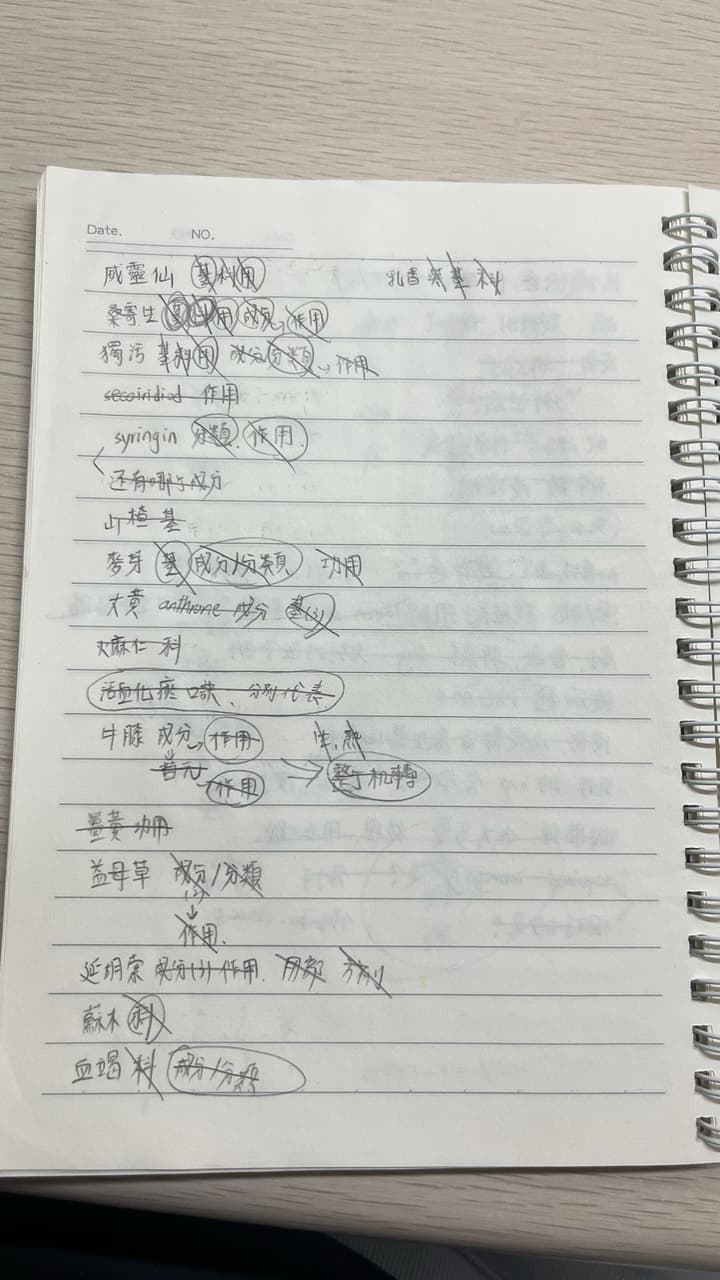 Date. NO.
威靈仙 基科用 乳香 英基科
桑寄生 基科用 成分 作用
獨活 基科用 成分分類 作用
secoiridiod 作用
syringin 分類. 作用.
还有哪些成分
山楂 基
麥芽 基 成分/分類 功用
大黃 anthrone 成分 基(3)
火麻仁 科
活血化瘀 口訣、分別代表
牛膝 成分 作用 生.熟
昔元 作用 整丁机轉
薑黃 功用
益母草 成分/分類
(2)
作用.
延胡索 成分(3) 作用. 用部 方劑
蘇木 科
血竭 科 成分/分類